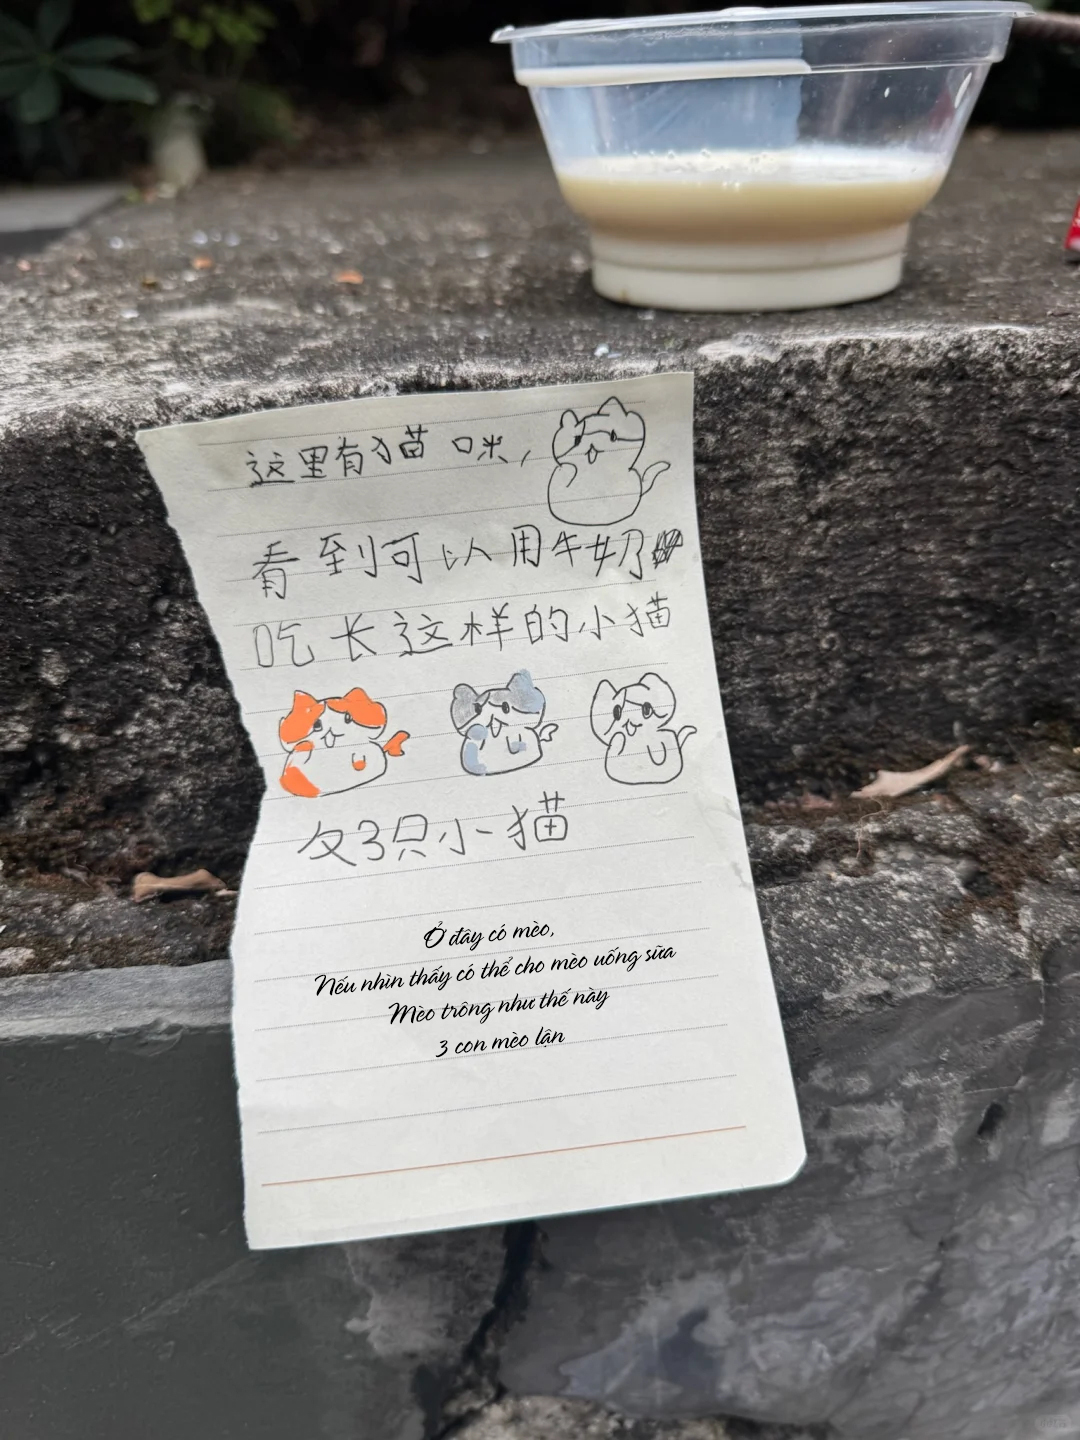 这里有猫 咪，
看到可以用牛奶
吃长这样的小猫
3只小猫
Ở đây có mèo,
Nếu nhìn thấy có thể cho mèo uống sữa
Mèo trông như thế này
3 con mèo lận